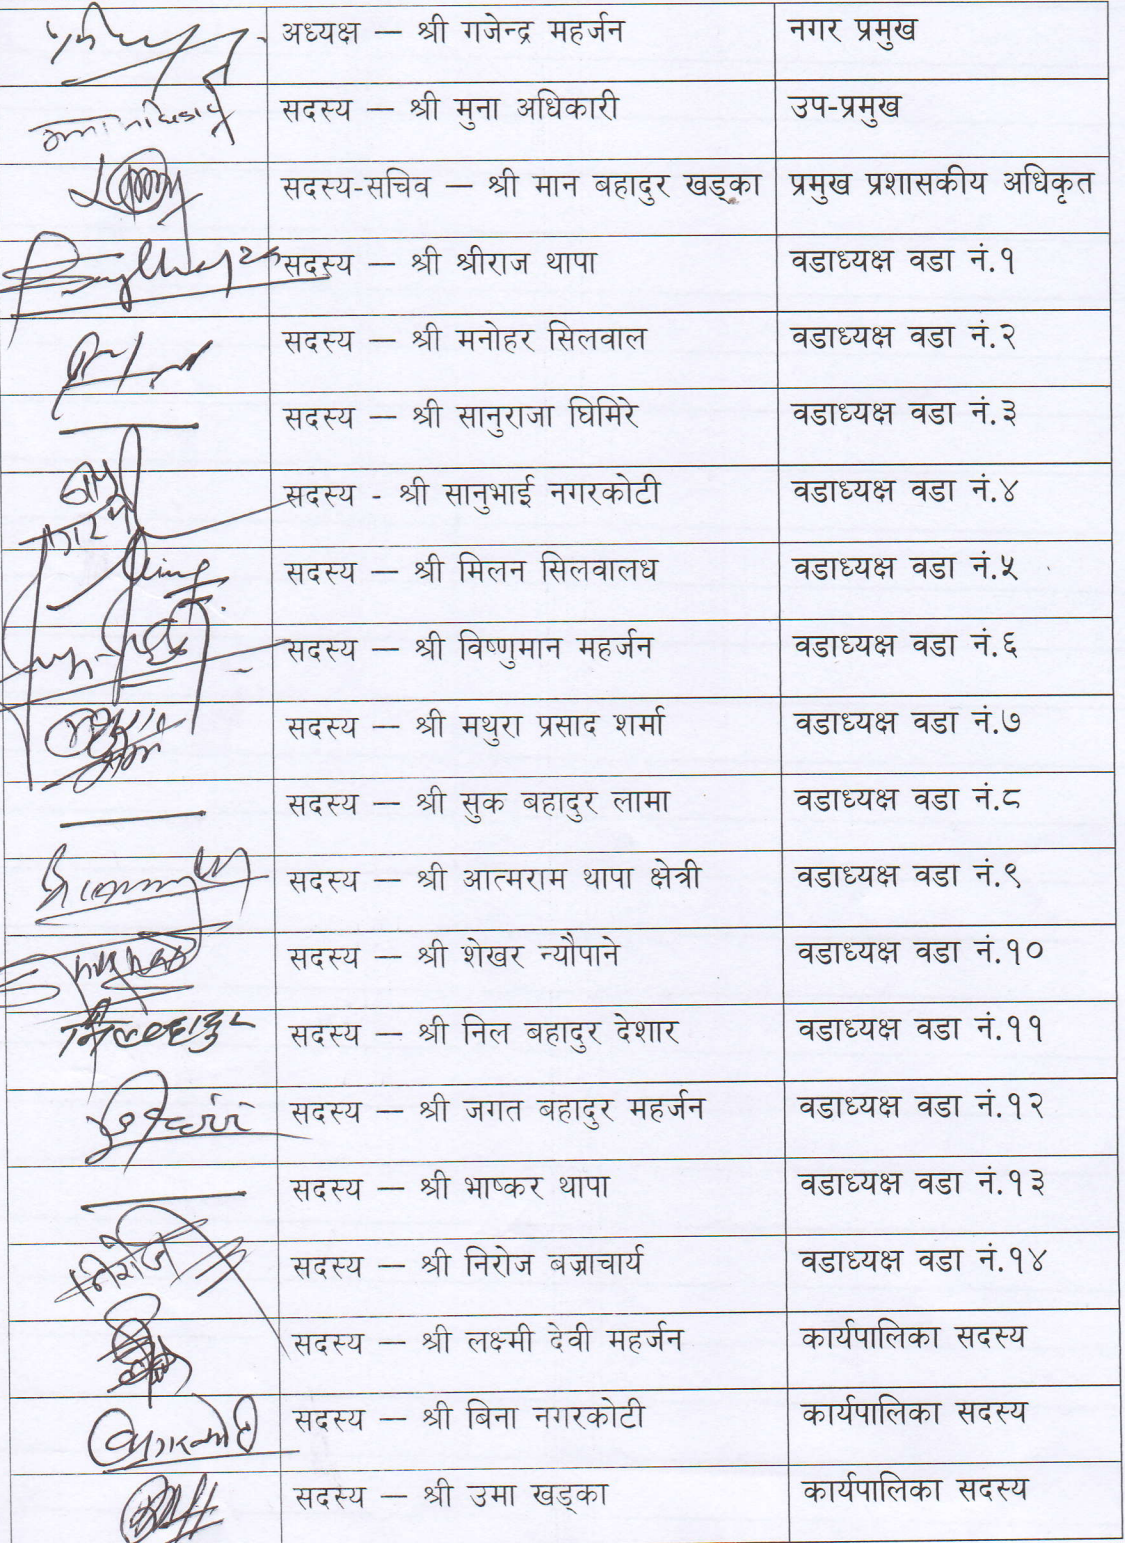 अध्यक्ष — श्री गजेन्द्र महर्जन नगर प्रमुख
सदस्य — श्री मुना अधिकारी उप-प्रमुख
सदस्य-सचिव — श्री मान बहादुर खड्का प्रमुख प्रशासकीय अधिकृत
सदस्य — श्री श्रीराज थापा वडाध्यक्ष वडा नं.१
सदस्य — श्री मनोहर सिलवाल वडाध्यक्ष वडा नं.२
सदस्य — श्री सानुराजा घिमिरे वडाध्यक्ष वडा नं.३
सदस्य - श्री सानुभाई नगरकोटी वडाध्यक्ष वडा नं.४
सदस्य — श्री मिलन सिलवालध वडाध्यक्ष वडा नं.५
सदस्य — श्री विष्णुमान महर्जन वडाध्यक्ष वडा नं.६
सदस्य — श्री मथुरा प्रसाद शर्मा वडाध्यक्ष वडा नं.७
सदस्य — श्री सुक बहादुर लामा वडाध्यक्ष वडा नं.८
सदस्य — श्री आत्मराम थापा क्षेत्री वडाध्यक्ष वडा नं.९
सदस्य — श्री शेखर न्यौपाने वडाध्यक्ष वडा नं.१०
सदस्य — श्री निल बहादुर देशार वडाध्यक्ष वडा नं.११
सदस्य — श्री जगत बहादुर महर्जन वडाध्यक्ष वडा नं.१२
सदस्य — श्री भाष्कर थापा वडाध्यक्ष वडा नं.१३
निरोज सदस्य — श्री निरोज बज्राचार्य वडाध्यक्ष वडा नं.१४
सदस्य — श्री लक्ष्मी देवी महर्जन कार्यपालिका सदस्य
सदस्य — श्री बिना नगरकोटी कार्यपालिका सदस्य
सदस्य — श्री उमा खड्का कार्यपालिका सदस्य